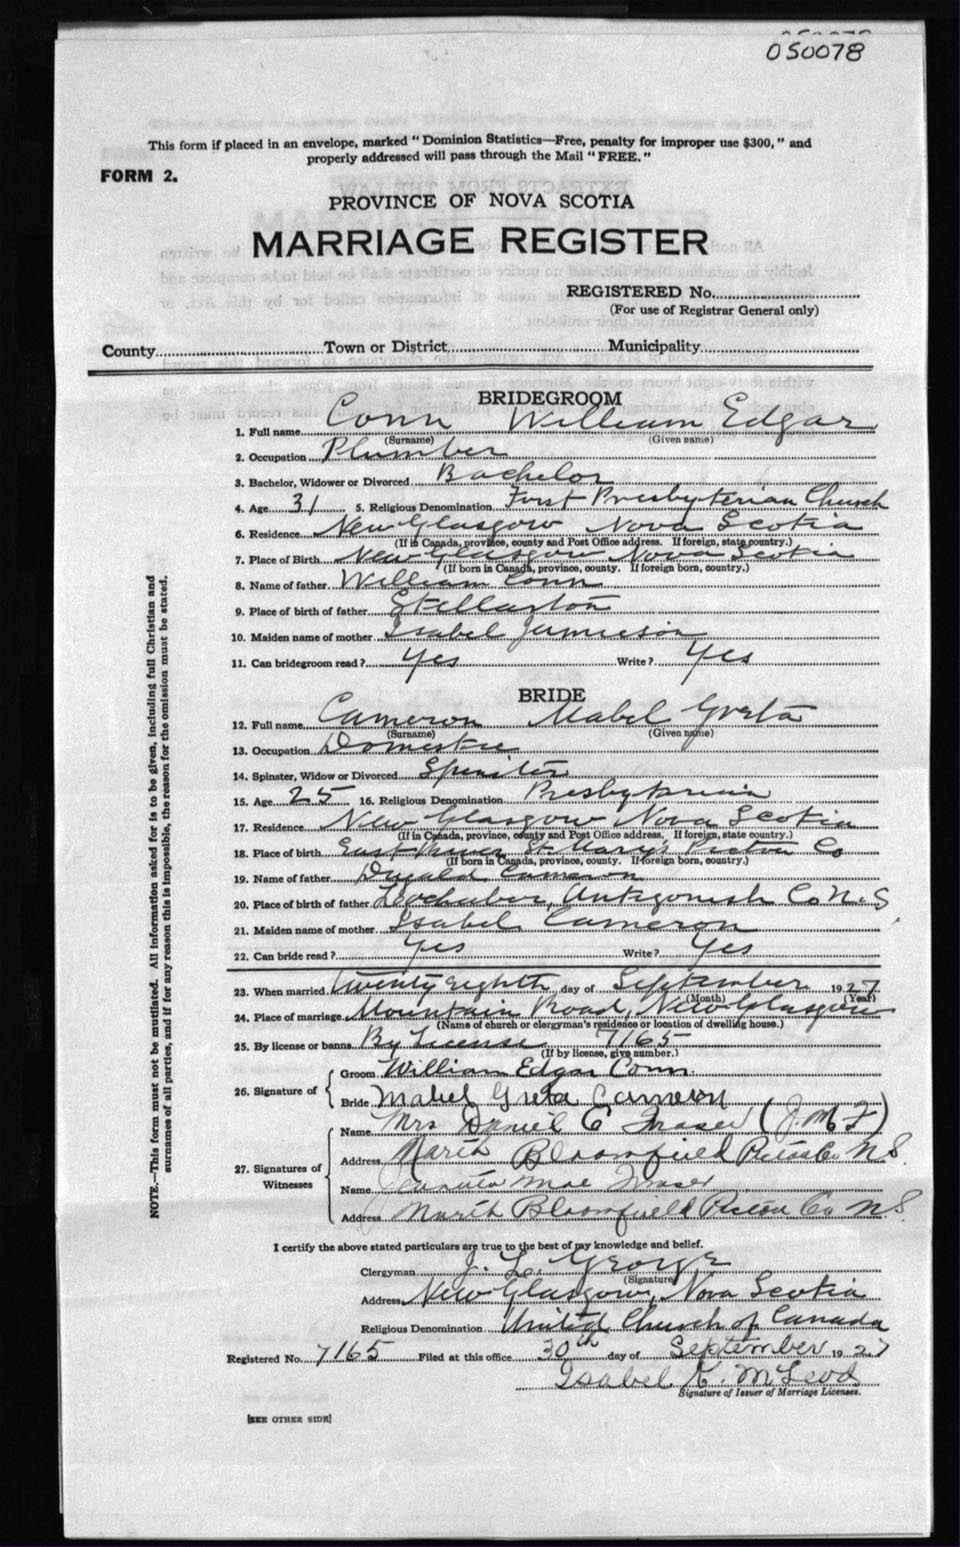 050078
This form if placed in an envelope, marked "Dominion Statistics—Free, penalty for improper use $300," and
properly addressed will pass through the Mail "FREE."
FORM 2.
PROVINCE OF NOVA SCOTIA
MARRIAGE REGISTER
REGISTERED No.
(For use of Registrar General only)
County Town or District Municipality
BRIDEGROOM
1. Full name Conn William Edgar
(Surname) (Given name)
2. Occupation Plumber
3. Bachelor, Widower or Divorced Bachelor
4. Age 31 5. Religious Denomination First Presbyterian Church
6. Residence New Glasgow Nova Scotia
(If in Canada, province, county and Post Office address. If foreign, state country.)
7. Place of Birth New Glasgow Nova Scotia
(If born in Canada, province, county. If foreign born, country.)
8. Name of father William Conn
9. Place of birth of father Stellarton
10. Maiden name of mother Isabel Jamieson
11. Can bridegroom read? Yes Write? Yes
BRIDE
12. Full name Cameron Mabel Greta
(Surname) (Given name)
13. Occupation Domestic
14. Spinster, Widow or Divorced Spinster
15. Age 25 16. Religious Denomination Presbyterian
17. Residence New Glasgow Nova Scotia
(If in Canada, province, county and Post Office address. If foreign, state country.)
18. Place of birth East River St Mary's Pictou Co
(If born in Canada, province, county. If foreign born, country.)
19. Name of father Donald Cameron
20. Place of birth of father Lochaber, Antigonish Co N.S.
21. Maiden name of mother Isabel Cameron
22. Can bride read? Yes Write? Yes
23. When married Twenty eighth day of September 1927
(Month) (Year)
24. Place of marriage Mountain Road, New Glasgow
(Name of church or clergyman's residence or location of dwelling house.)
25. By license or banns By License 7165
(If by license, give number.)
26. Signature of
Groom William Edgar Conn.
Bride Mabel Greta Cameron
27. Signatures of Witnesses
Name Mrs Daniel C Fraser (J.M.F)
Address North Bloomfield Pictou Co N.S.
Name Mae Fraser
Address North Bloomfield Pictou Co N.S.
NOTE.—This form must not be mutilated. All information asked for is to be given, including full Christian and
surnames of all parties, and if for any reason this is impossible, the reason for the omission must be stated.
I certify the above stated particulars are true to the best of my knowledge and belief.
Clergyman J. L. George
(Signature)
Address New Glasgow, Nova Scotia
Religious Denomination United Church of Canada
Registered No. 7165 Filed at this office 30th day of September 1927
Isabel K. McLeod
Signature of Issuer of Marriage Licenses.
[SEE OTHER SIDE]